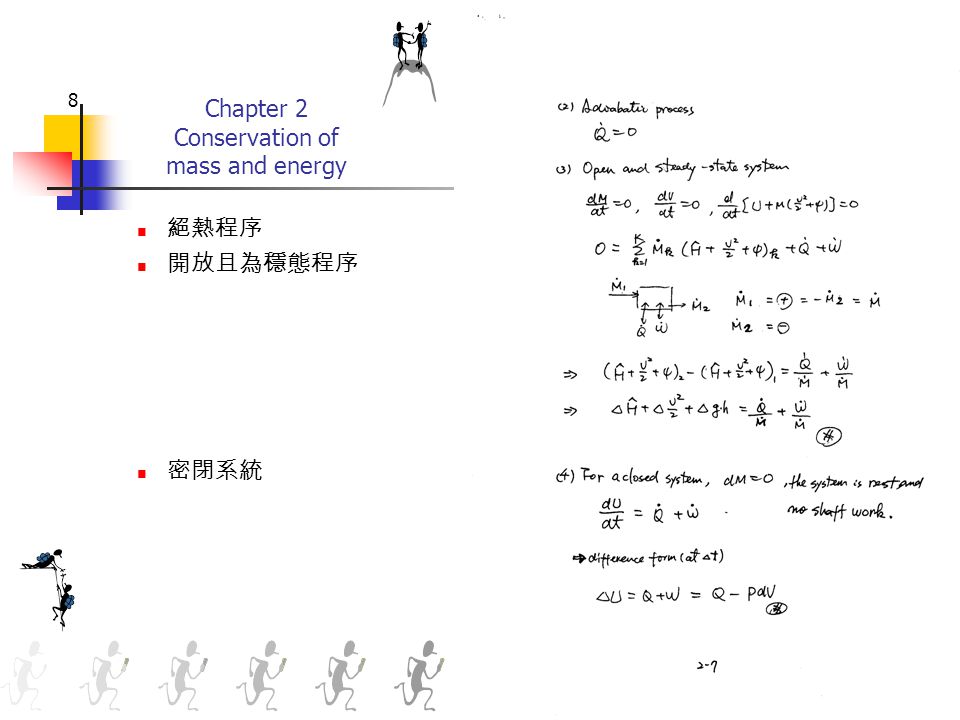 8
Chapter 2
Conservation of
mass and energy
絕熱程序
開放且為穩態程序
密閉系統
(2) Adiabatic process
Q̇=0
(3) Open and steady-state system
dM/dt=0, dU/dt=0, d/dt[U+M(v²/2+ψ)]=0
0 = Σ_{k=1}^{K} Ṁk (Ĥ+v²/2+ψ)k +Q̇+Ẇ
Ṁ1 Ṁ2 Q̇ Ẇ
Ṁ1 =⊕=-Ṁ2 = Ṁ
Ṁ2 =⊖
⇒ (Ĥ+v²/2+ψ)2-(Ĥ+v²/2+ψ)1=Q̇/Ṁ+Ẇ/Ṁ
⇒ ΔĤ+Δv²/2+Δgh=Q̇/Ṁ+Ẇ/Ṁ
#
(4) For a closed system, dM=0, the system is rest and
no shaft work.
dU/dt = Q̇+Ẇ
⇒difference form (at Δt)
ΔU=Q+W = Q-PdV
#
2-7